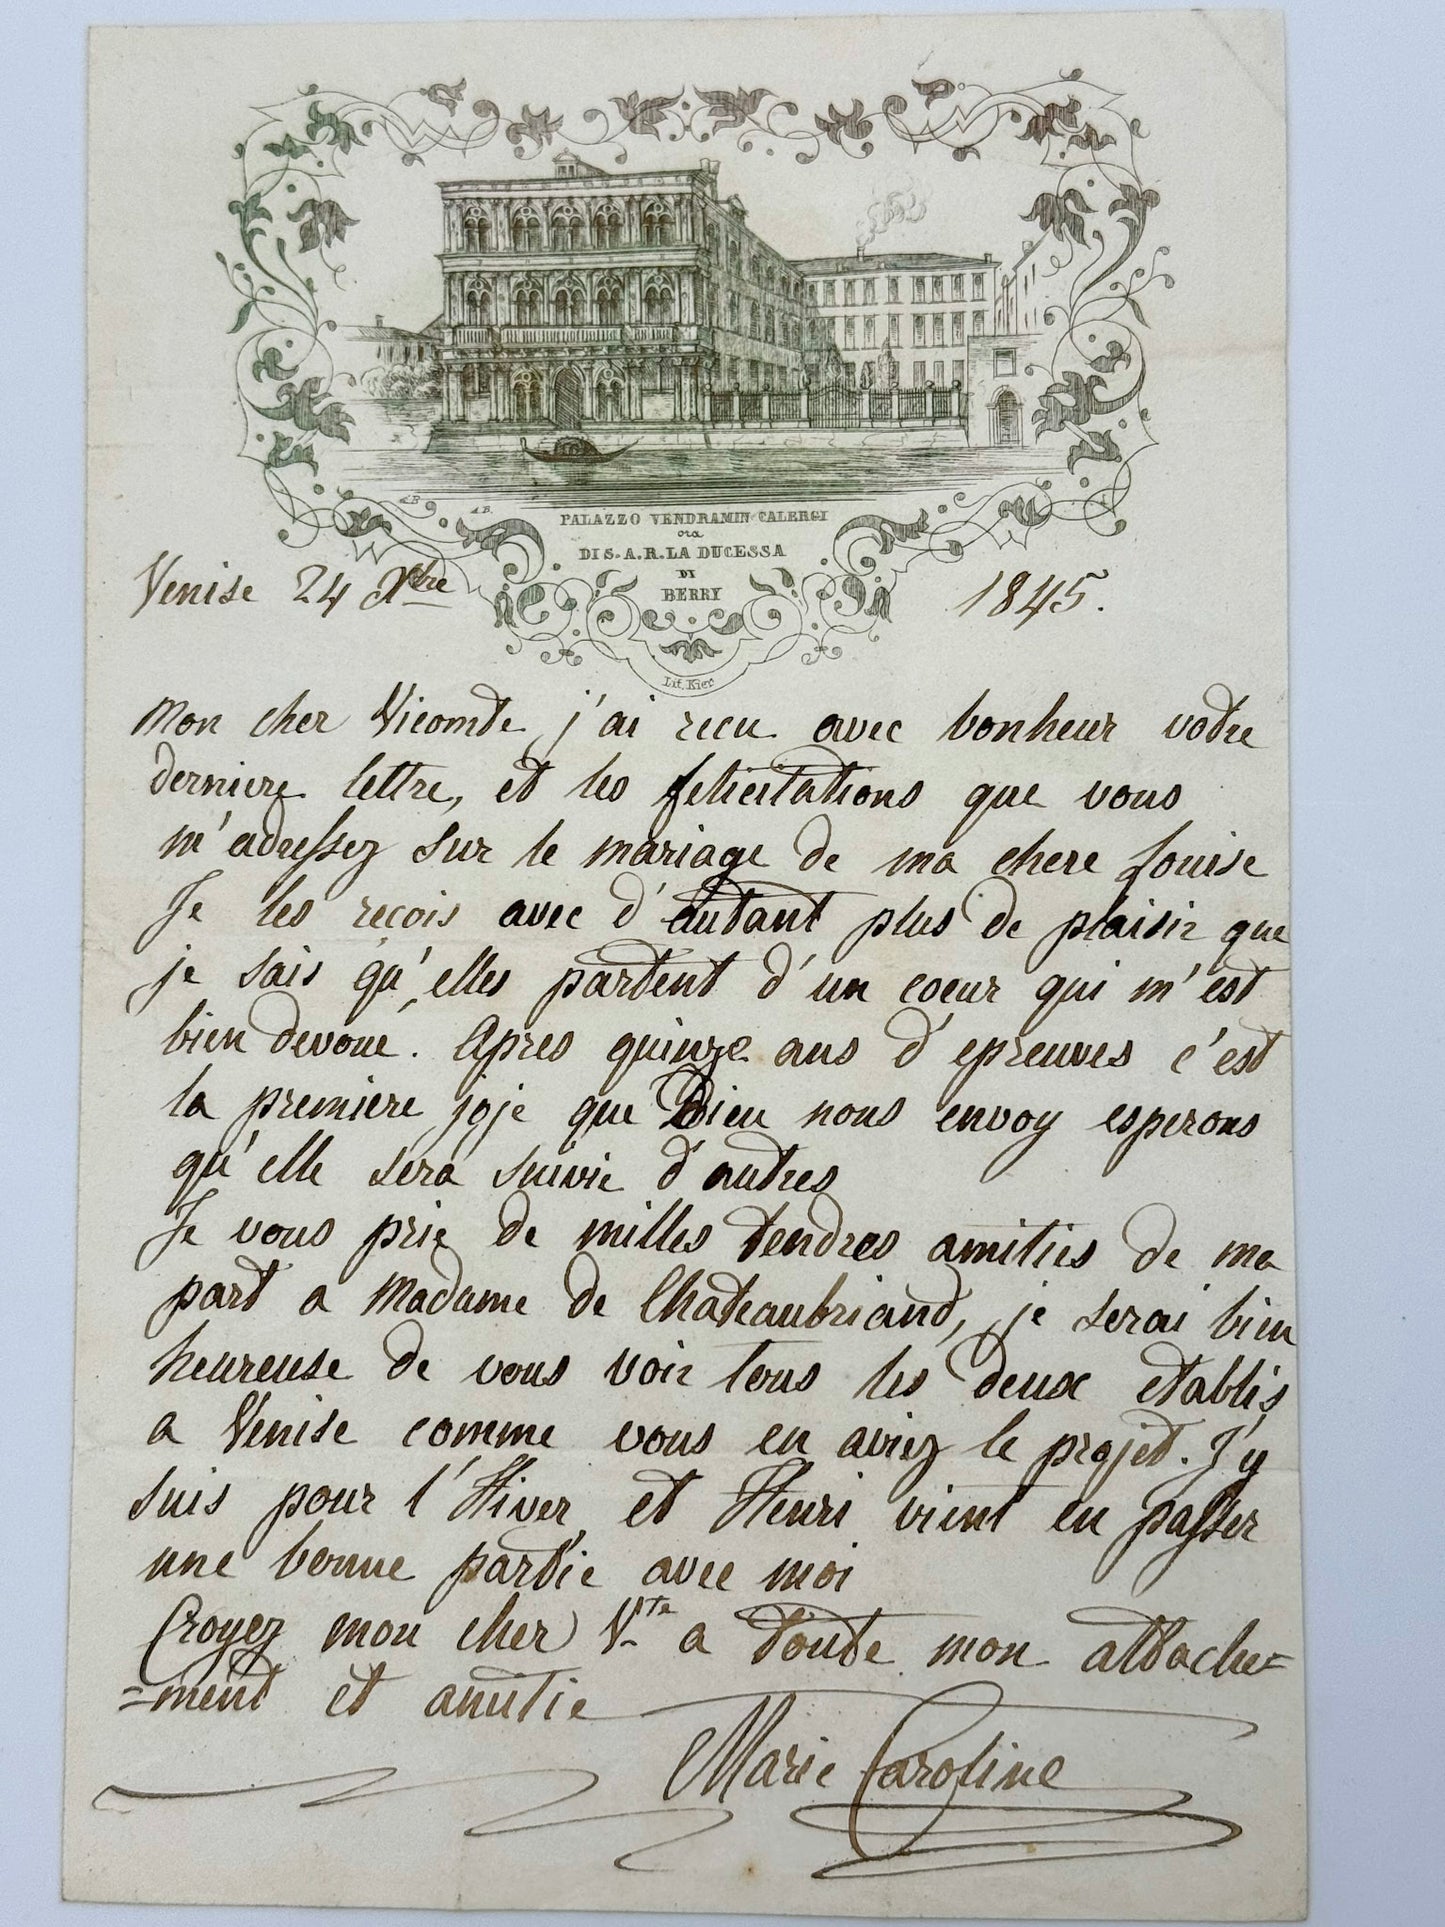 PALAZZO VENDRAMIN CALERGI
ora
DI S.A.R. LA DUCESSA
DI
BERRY
Lit. Kier
Venise 24 Xbre 1845.
Mon cher Vicomte, j'ai recu avec bonheur votre
derniere lettre, et les felicitations que vous
m'adressez sur le mariage de ma chere Louise
Je les recois avec d'autant plus de plaisir que
je sais qu'elles partent d'un coeur qui m'est
bien devoué. Apres quinze ans d'epreuves c'est
la premiere joje que Dieu nous envoy esperons
qu'elle sera suivie d'autres
Je vous prie de milles tendres amities de ma
part a Madame de Chateaubriand, je serai bien
heureuse de vous voir tous les deux etablis
a Venise comme vous en aviez le projet. J'y
suis pour l'Hiver et Henri vient en passer
une bonne partie avec moi
Croyez mon cher Vte a toute mon attache=
=ment et amitie
Marie Caroline